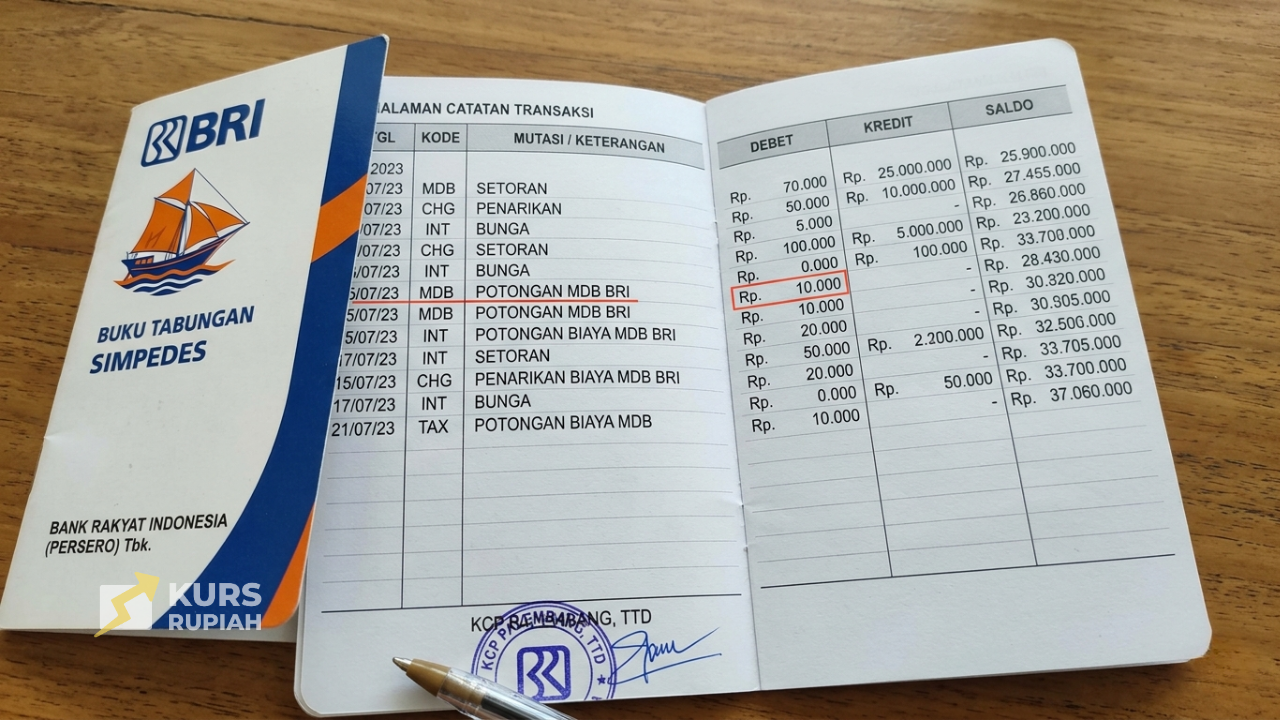 BRI
BUKU TABUNGAN
SIMPEDES
BANK RAKYAT INDONESIA
(PERSERO) Tbk.
KURS
RUPIAH
HALAMAN CATATAN TRANSAKSI
TGL KODE MUTASI / KETERANGAN
2023
07/23 MDB SETORAN
/07/23 CHG PENARIKAN
/07/23 INT BUNGA
/07/23 CHG SETORAN
/07/23 INT BUNGA
5/07/23 MDB POTONGAN MDB BRI
5/07/23 MDB POTONGAN MDB BRI
15/07/23 INT POTONGAN BIAYA MDB BRI
17/07/23 INT SETORAN
15/07/23 CHG PENARIKAN BIAYA MDB BRI
17/07/23 INT BUNGA
21/07/23 TAX POTONGAN BIAYA MDB
KCP PALEMBANG, TTD
BRI
DEBET KREDIT SALDO
Rp. 70.000 Rp. 25.000.000 Rp. 25.900.000
Rp. 50.000 Rp. 10.000.000 Rp. 27.455.000
Rp. 5.000 - Rp. 26.860.000
Rp. 100.000 Rp. 5.000.000 Rp. 23.200.000
Rp. 0.000 Rp. 100.000 Rp. 33.700.000
Rp. 10.000 - Rp. 28.430.000
Rp. 10.000 - Rp. 30.320.000
Rp. 20.000 - Rp. 30.905.000
Rp. 50.000 Rp. 2.200.000 Rp. 32.506.000
Rp. 20.000 - Rp. 33.705.000
Rp. 0.000 Rp. 50.000 Rp. 33.700.000
Rp. 10.000 - Rp. 37.060.000